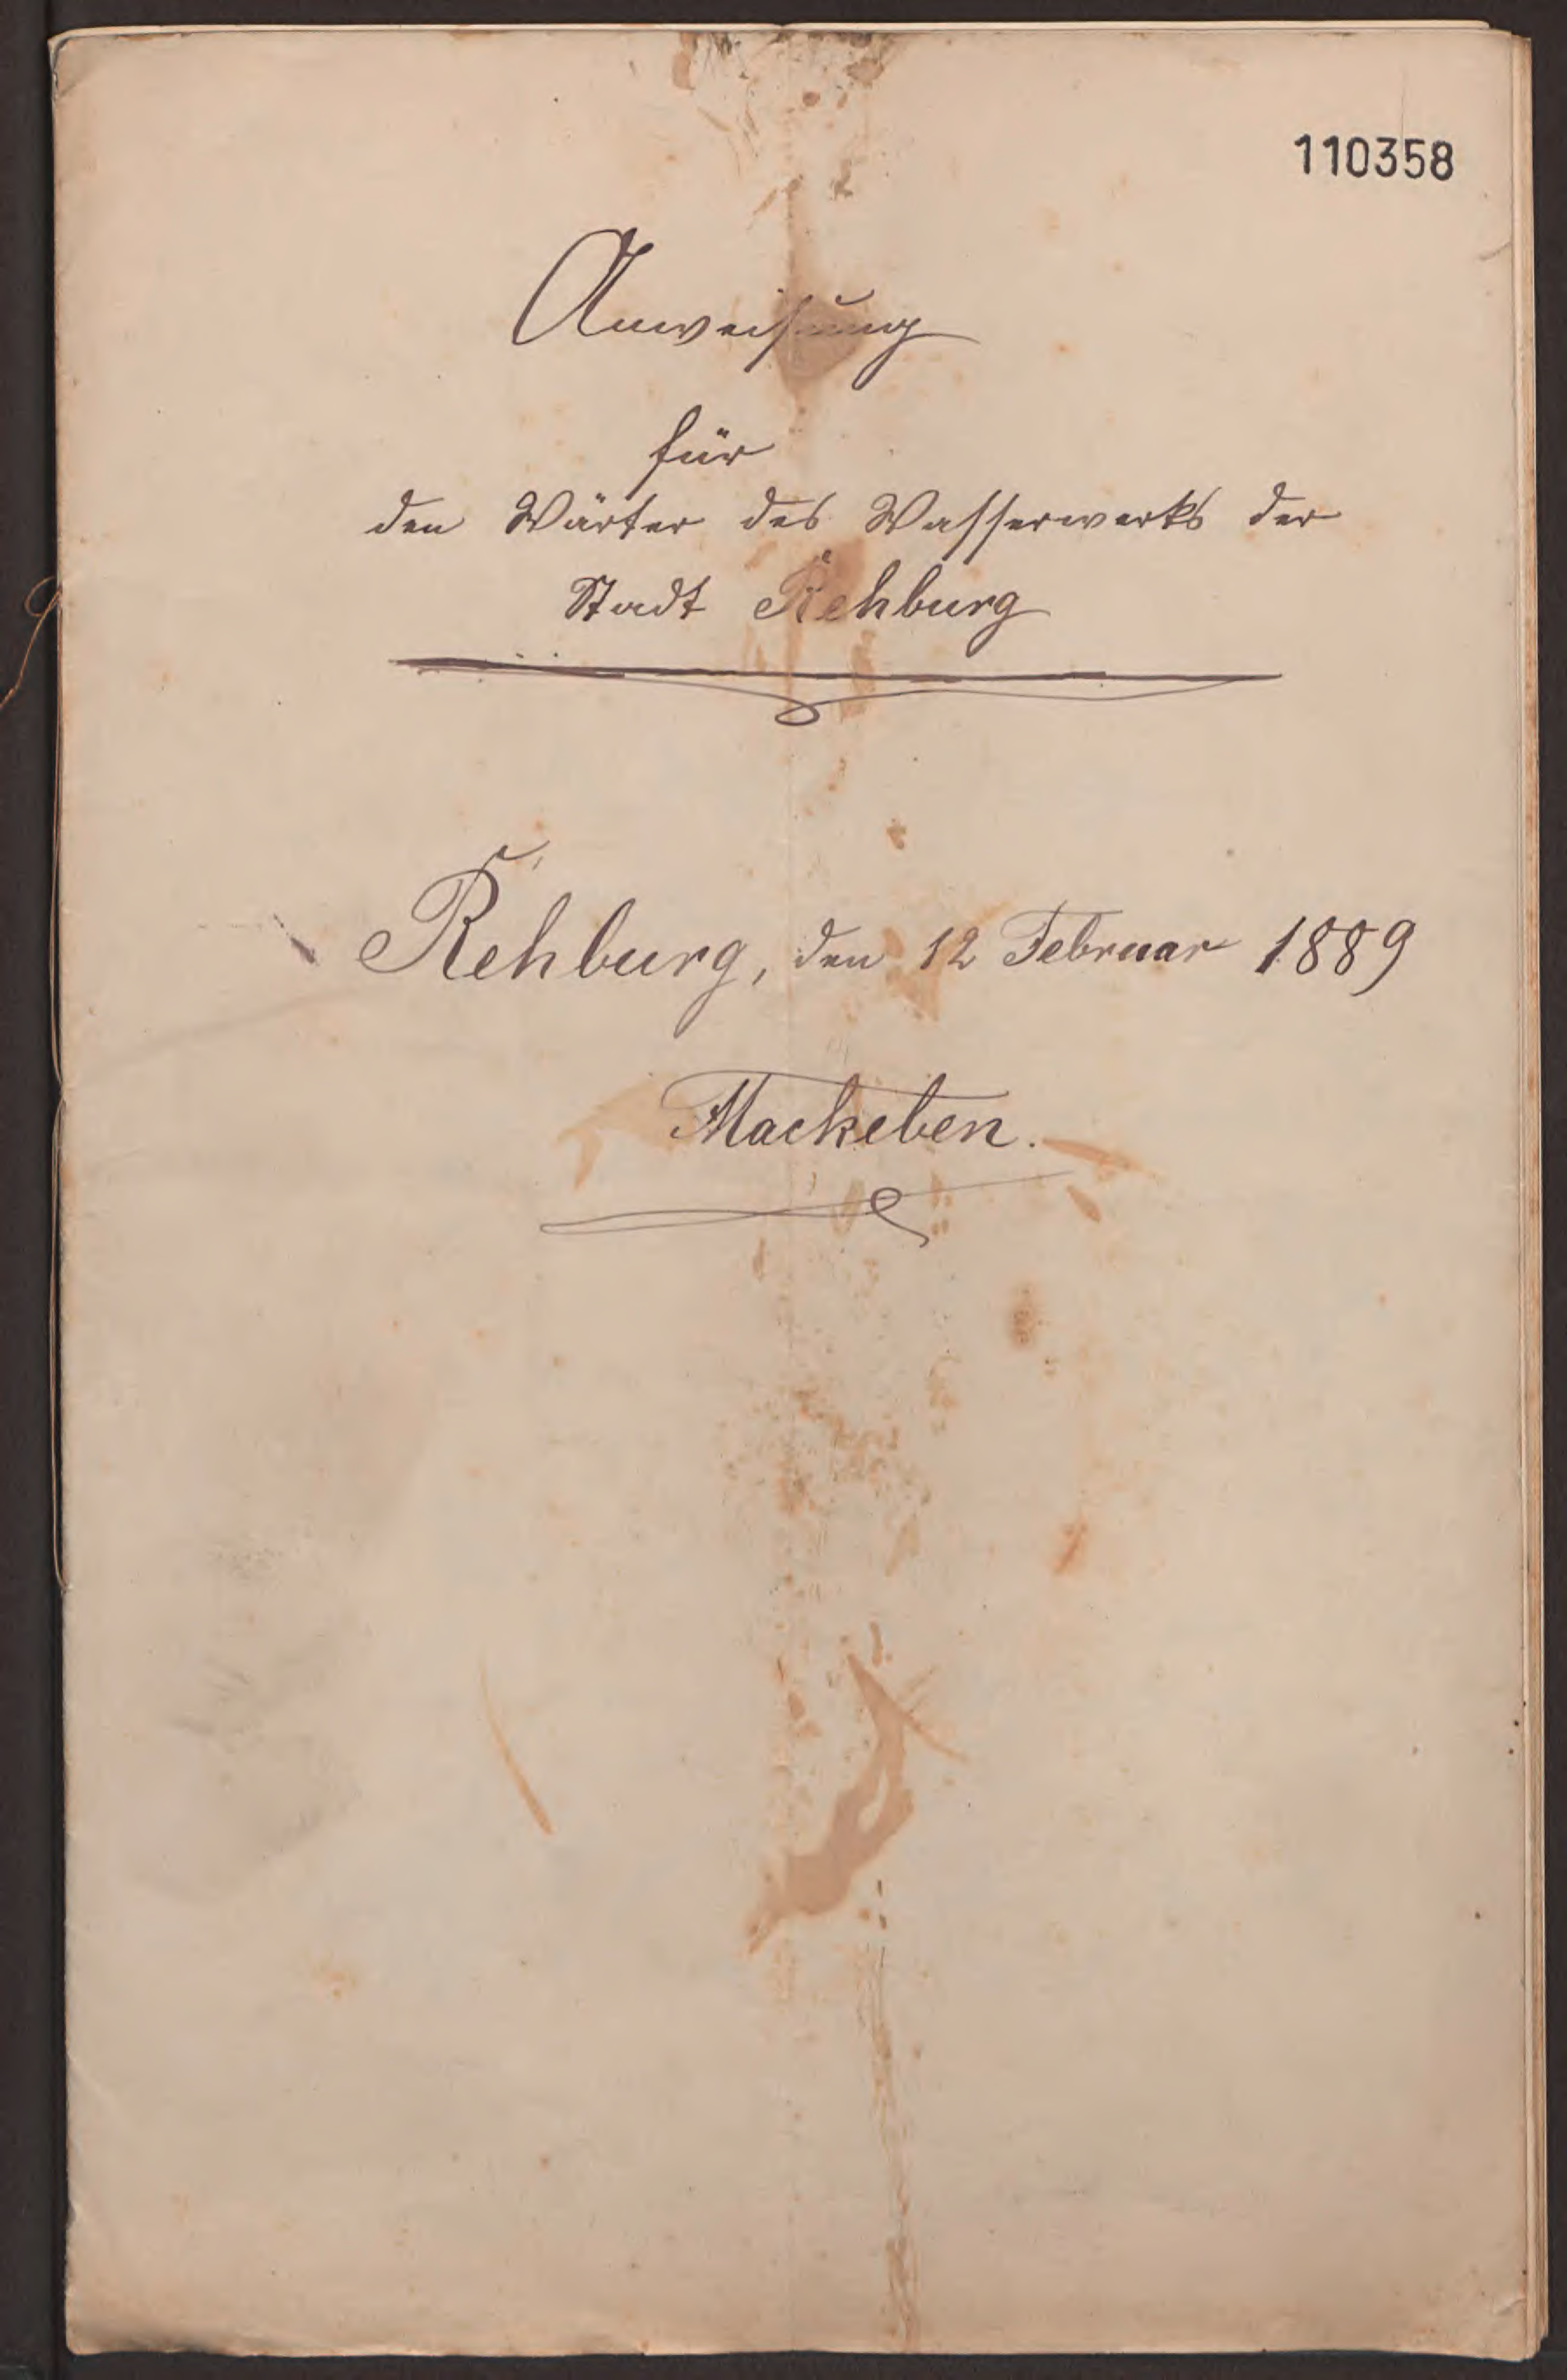 110358
Anweisung
für
den Wärter des Wasserwerks der
Stadt Rehburg
Rehburg, den 12 Februar 1889
Mackeben.